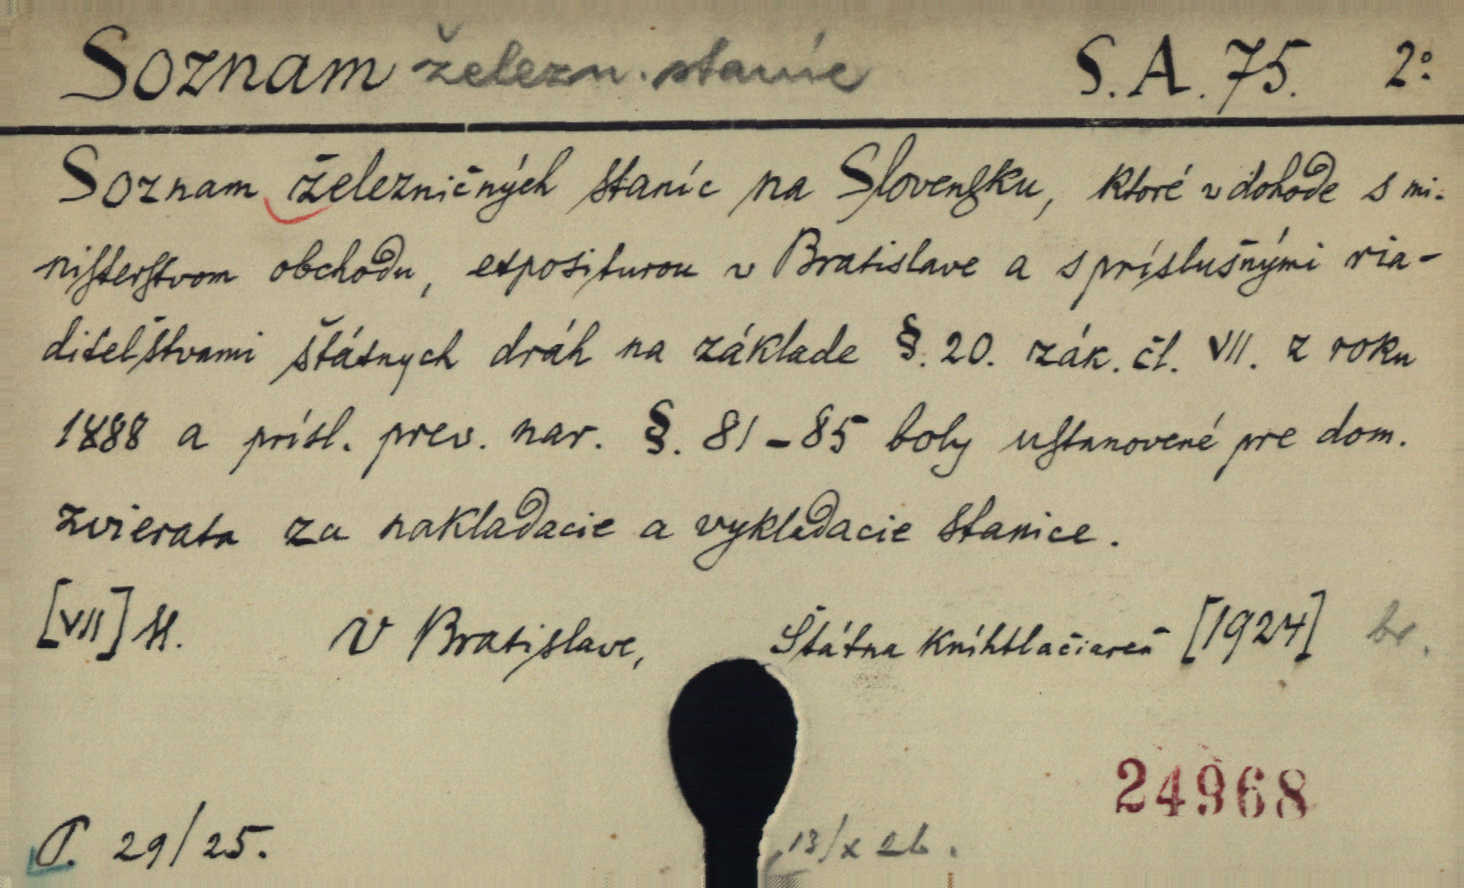 Soznam železn. staníc S. A. 75. 2°
Soznam železničných staníc na Slovensku, ktoré v dohode s mi-
nisterstvom obchodu, expositurou v Bratislave a s príslušnými ria-
ditelštvami štátnych dráh na základe §. 20. zák. čl. VII. z roku
1888 a prísl. prev. nar. §. 81-85 boly ustanovené pre dom.
zvierata za nakladacie a vykladacie stanice.
[VII] st. V Bratislave, Štátna kníhtlačiareň [1924] br.
24968
P. 29/25. 13/x 26.